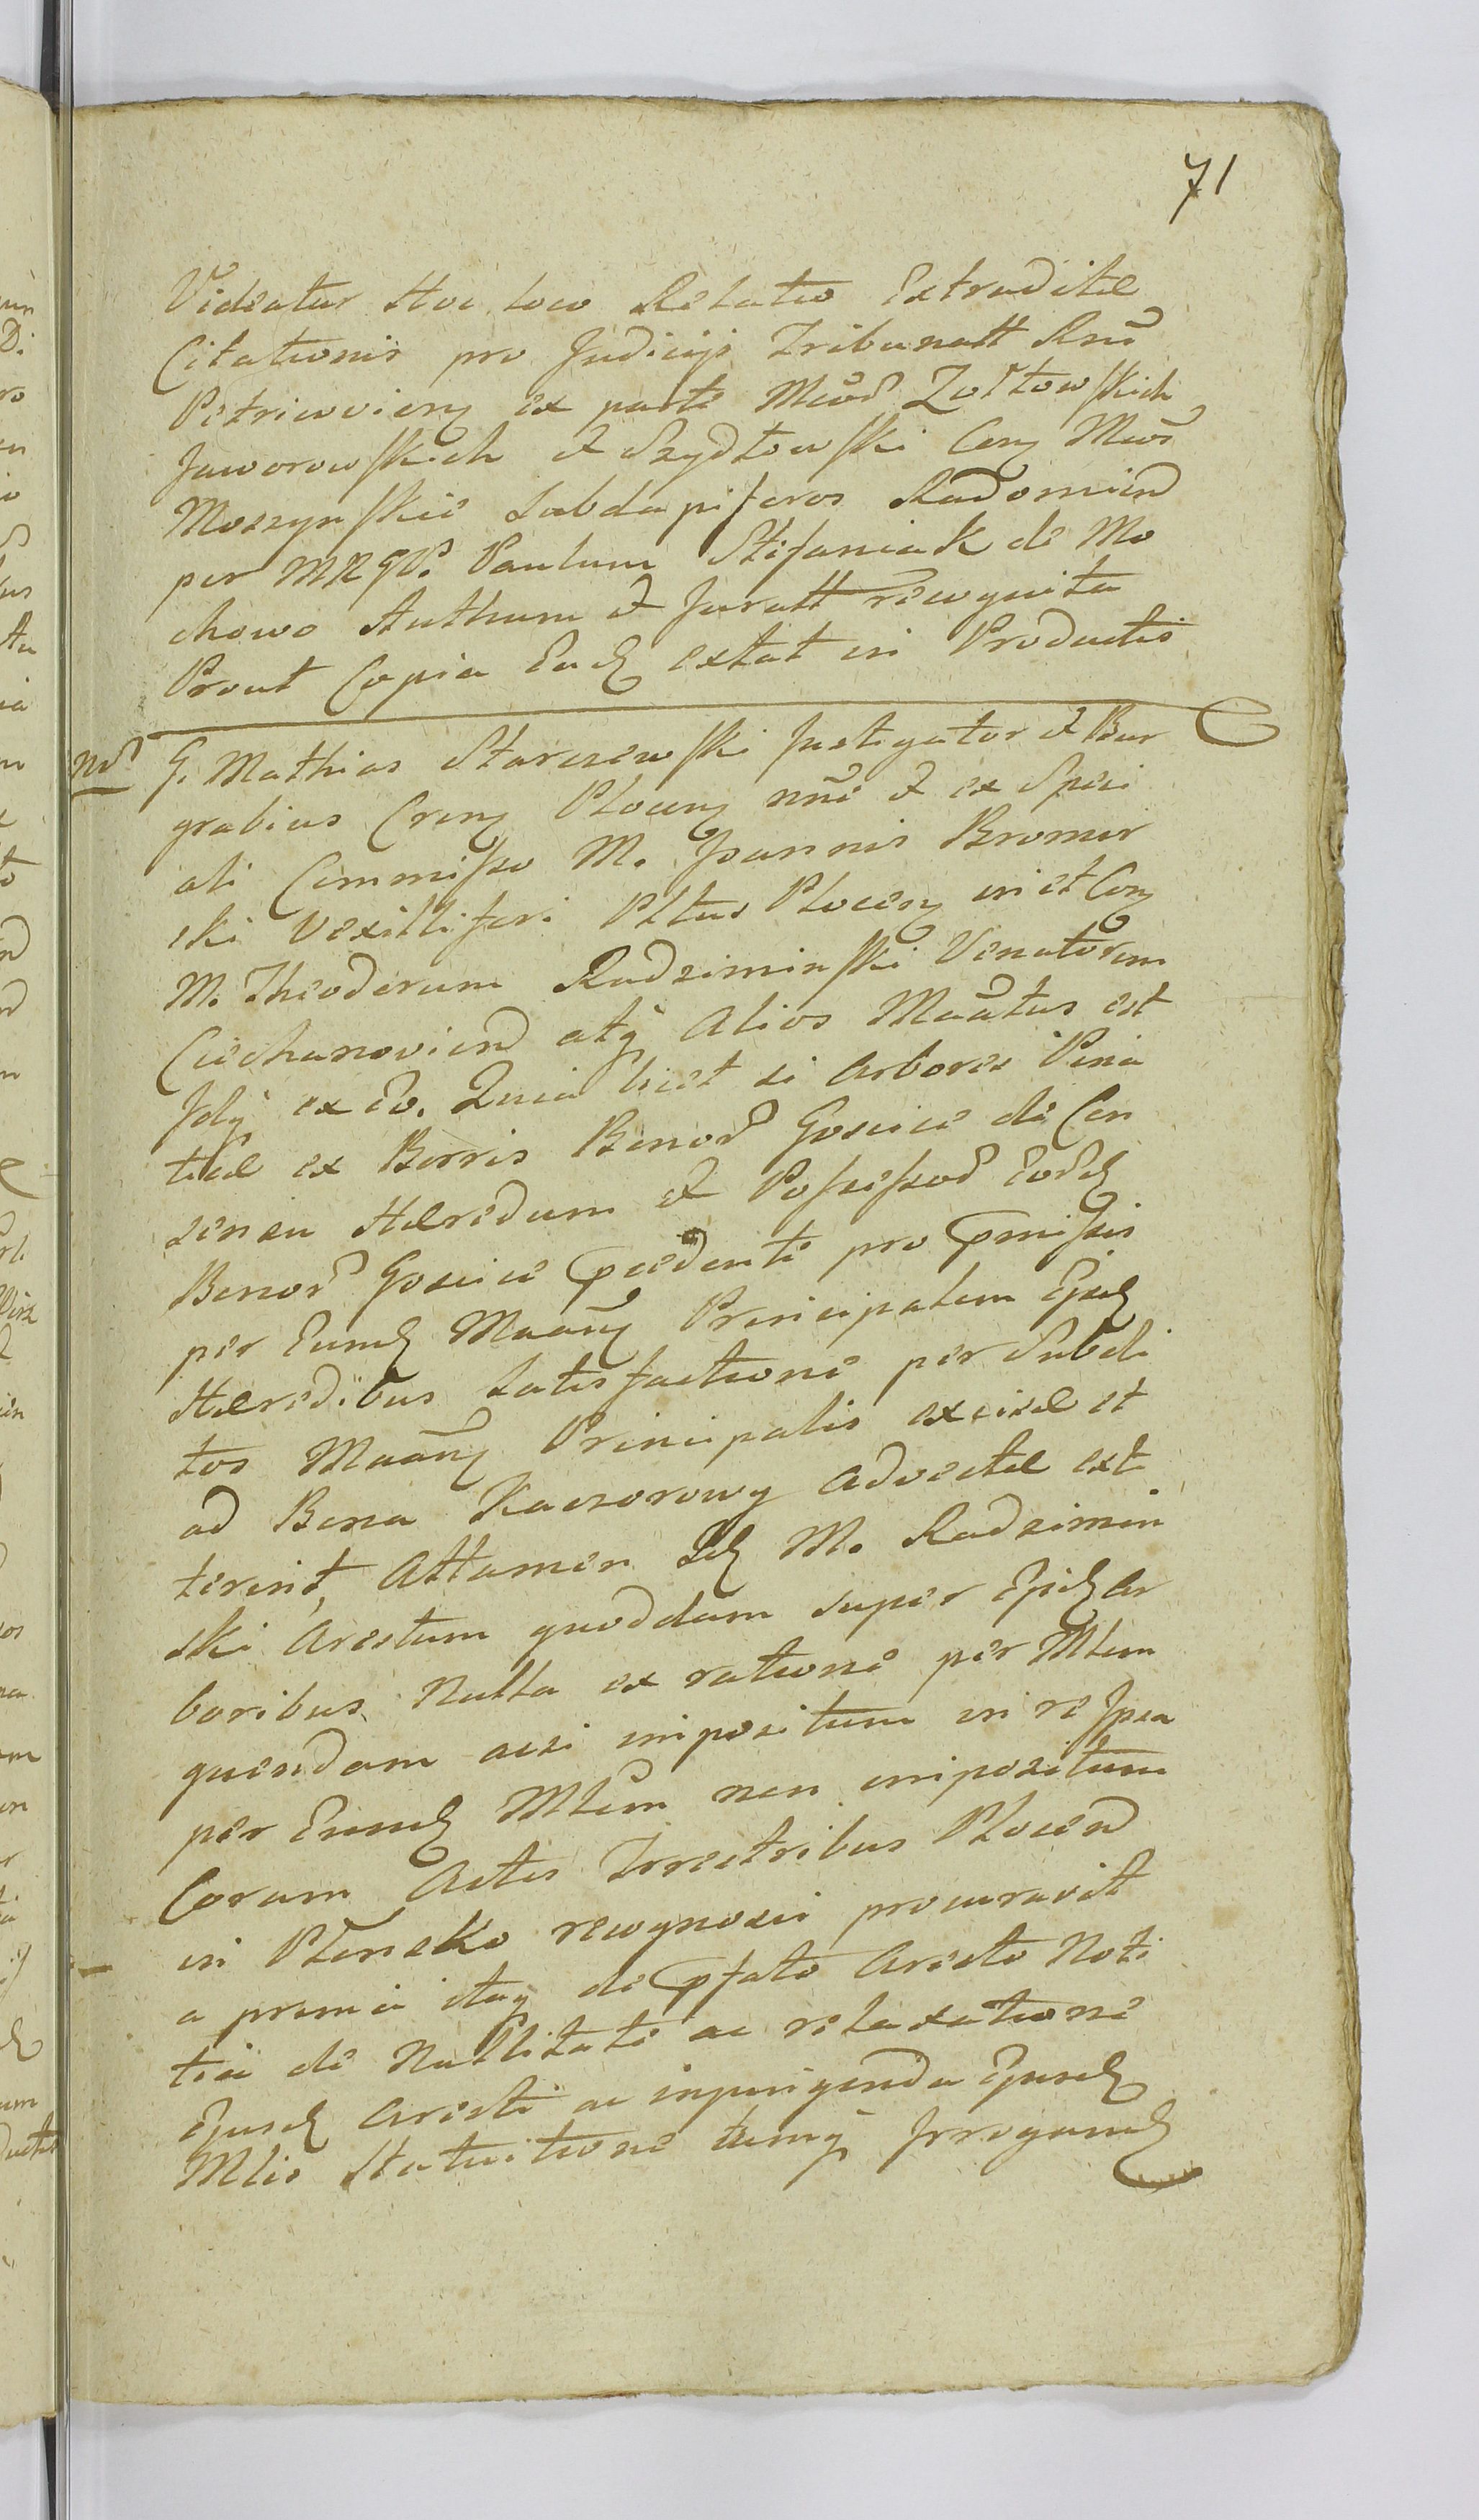 71
Videatur Hoc loco Relatio Extraditæ
Citationis pro Judicijs Tribunatt Rnĩ
Petricovieñ ex parte Mcoꝝ Zołtowskich
Jaworowskich et Szydłowski Coñ Mcos
Moszynskie Subdapiferos Radomien
per MRGV. Paulum Stefaniak de Mo
chowo Authum et Juratt recognita
Prout Copia Ead extat in Productis
G. Mathias Starczewski Instigator et Bur
grabius Creñ Ploceñ nñe et ex Speci
ali Commisso M. Joannis Bromir
ski Vexilliferi Pltus Ploceñ in et Coñ
M. Theodorum Radziminski Venatorem
Ciechanovien atq̃ Alios Maatus est
Idq̃ ex Eo. Quia licet si Arbores Pinia
ticæ ex Borris Bonoꝝ Goscice de Con
sensu Hæredum et Possessoꝝ Eoꝝd
Bonoꝝ Goscice præcedente pro præmissis
per Eumd Maañ Principalem Ijsd
Hæredibus Satisfactione per Subdi
tos Maañ Principalis excisæ et
ad Bona Kaczorowy Advectæ exti
terint, Attamen Id M. Radzimin
ski Arestum quoddam super Ijsd Ar
boribus Nulla ex ratione per Mlem
quendam acsi impositum in re Ipsa
per Eumd Mlem non impositum
Coram Actis Trrestribus Plocen
in Płonsko recognosci procuravit
a prima itaq de pfato Aresto Noti
tia de Nullitate ac relaxatione
Ejusd Aresti ac injungenda Ejusd
Mlis Statuitione tumq̃ Irrogand